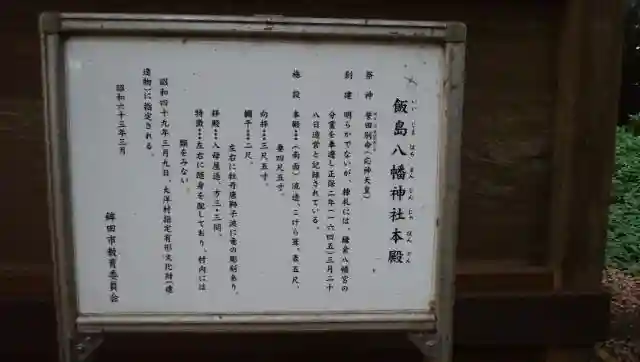 飯島八幡神社本殿
いいじまはちまんじんじゃほんでん
祭神 誉田別命(応神天皇)
創建 明らかでないが、棟札には、鎌倉八幡宮の
分霊を奉遷し正保二年(一六四五)三月二十
八日造営と記録されている。
施設 本殿…(南面)流造、こけら葺、表五尺、
妻四尺五寸。
向拝…三尺五寸。
欄干…二尺。
左右に牡丹唐獅子波に竜の彫刻あり。
拝殿…入母屋造、方三・三間。
特徴…左右に随身を配しており、村内には
類をみない。
昭和四十九年三月九日、大洋村指定有形文化財(建
造物)に指定される。
昭和六十三年三月
鉾田市教育委員会